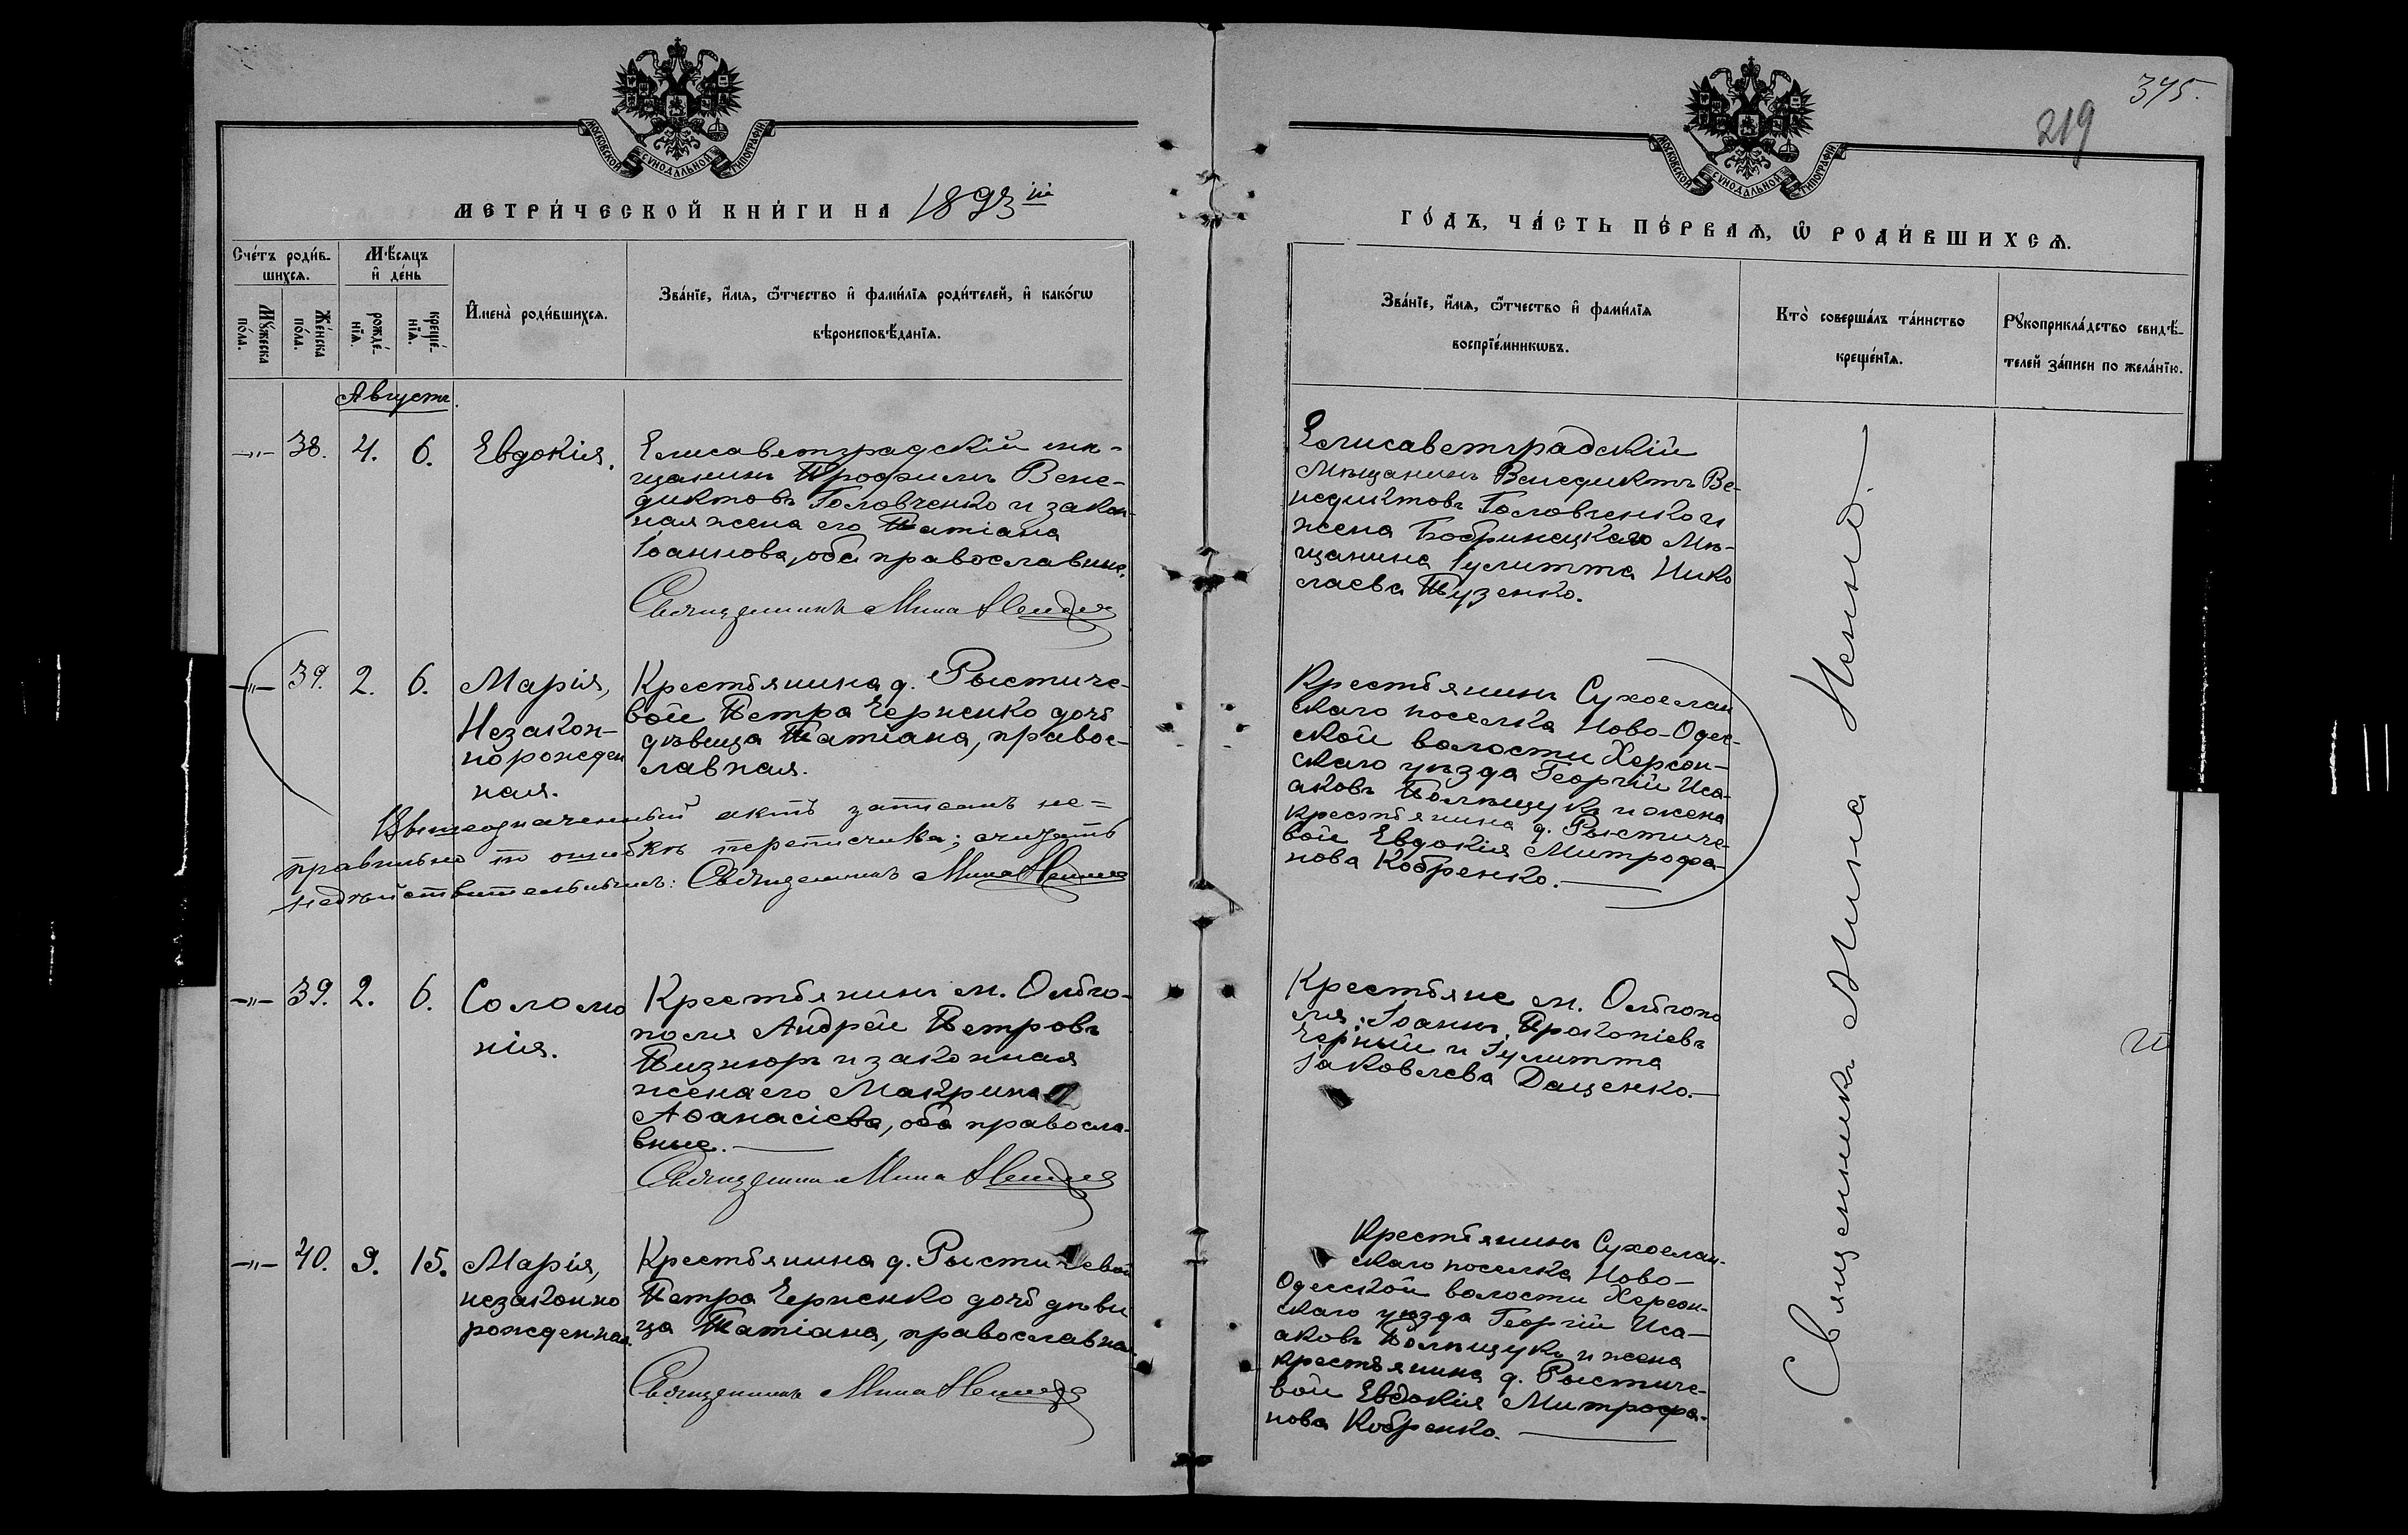 МОСКОВСКОЙ СѴНОДАЛЬНОЙ ТИПОГРАФІИ
МЕТРИ́ЧЕСКОЙ КНИ́ГИ НА 1893 ій
Сче́тъ роди́в-
шихсѧ.
Мꙋ́жеска
по́ла.
Же́нска
по́ла.
Мѣ́сѧцъ
и҆ де́нь
рожде́-
нїѧ.
креще́-
нїѧ.
И҆мена̀ роди́вшихсѧ.
Зва́нїе, и҆́мѧ, ѻ҆́тчество и҆ фами́лїѧ роди́телей, и҆ како́гѡ
вѣроисповѣ́данїѧ.
Августъ.
—„— 38. 4. 6. Евдокія.
Елисаветградскій мѣ-
щанинъ Трофимъ Вене-
диктовъ Головченко и закон-
ная жена его Татіана
Іоаннова, оба православные.
Священникъ Мина
—„— 39. 2. 6. Марія,
Незакон-
норожден
ная.
Крестьянина д. Рыстиче-
вой Петра Черненко дочь
дѣвица Татіана, правос-
лавная.
Вышеозначенный актъ записанъ не=
правильно по ошибкѣ переписчика; считать
недѣйствительнымъ: Священникъ Мина
—„— 39. 2. 6. Соломо
нія.
Крестьянинъ м. Ольго-
поля Андрей Петровъ
Пизнюръ и законная
жена его Макрина
Аѳанасіева, оба правосла-
вные.
Священникъ Мина
—„— 40. 9. 15. Марія,
незаконно
рожденная.
Крестьянина д. Рыстичевой
Петра Черненко дочь дѣви
ца Татіана, православна
Священникъ Мина
375.
219
МОСКОВСКОЙ СѴНОДАЛЬНОЙ ТИПОГРАФІИ
ГО́ДЪ, ЧА́СТЬ ПЕ́РВАѦ, Ѽ РОДИ́ВШИХСѦ.
Зва́нїе, и҆́мѧ, ѻ҆́тчество и҆ фами́лїѧ
воспрїе́мникѡвъ.
Кто̀ соверша́лъ та́инство
креще́нїѧ.
Рꙋкоприкла́дство свидѣ́-
телей за́писи по жела́нїю.
Елисаветградскій
Мѣщанинъ Венедиктъ Ве-
недиктовъ Головченко и
жена Бобринецкаго Мѣ-
щанина Іулитта Нико
лаева Тузенко.
Крестьянинъ Сухоелан
скаго поселка Ново-Одес-
ской волости Херсон-
скаго уѣзда Георгій Иса-
аковъ Полѣщукъ и жена
крестьянина д. Рыстиче-
вой Евдокія Митрофа-
нова Кобренко.
Крестьяне м. Ольгопо
ля: Іоаннъ Прокопіевъ
Черный и Іулитта
Іаковлева Даценко.
Крестьянинъ Сухоелан-
скаго поселка Ново-
Одесской волости Херсон-
скаго уѣзда Георгій Иса-
аковъ Полѣщукъ и жена
крестьянина д. Рыстиче-
вой Евдокія Митрофа-
нова Кобренко.
Священникъ Мина